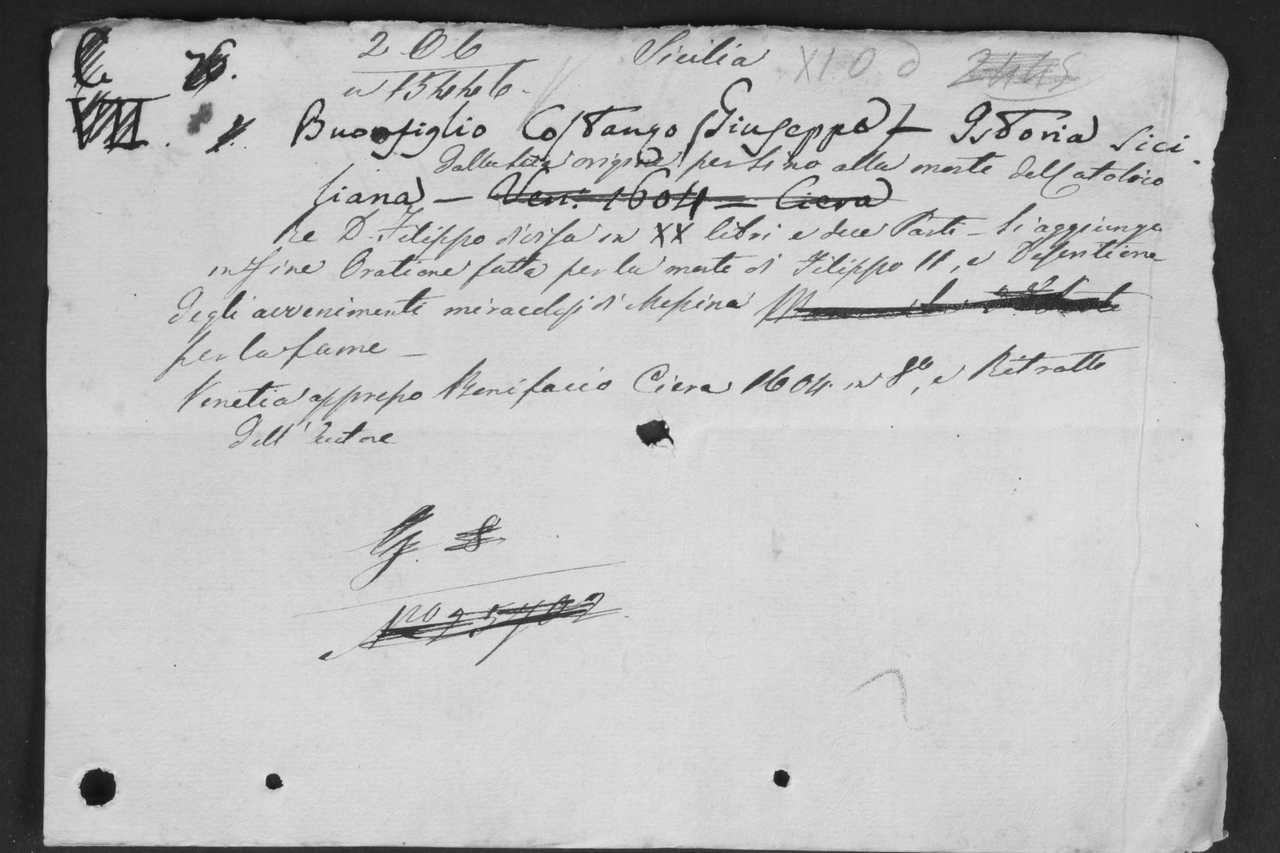 2 O b Sicilia XI O d
n 15446.
VIII.
Buonfiglio Costanzo (Giuseppe) - Istoria Sici-
dalla sua origine per sino alla morte del Catolico
liana) - Ven: 1604 = Ciera
Re D. Filippo divisa in XX libri e due Parti - Si aggiunge
in fine Oratione fatta per la morte di Filippo II, e Defentione
degli avvenimenti miracolosi di Messina
per la fame -
Venetia appresso Bonifacio Ciera 1604 in 8º, e Ritratto
dell'Autore
8
Nro 25702